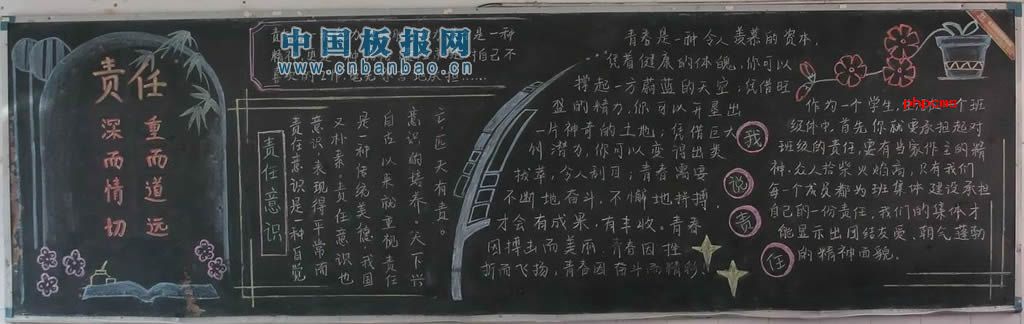 责任
深而情切
重而道远
中国板报网
www.cnbanbao.cn
是一种
自己不
责任意识
责任意识是一种自觉
意识,表现得平常而
又朴素。责任意识也
是一种传统美德,我国
自古以来就重视责任
意识的培养。天下兴
亡匹夫有责。
青春是一种令人羡慕的资本,
凭着健康的体魄,你可以
撑起一方蔚蓝的天空;凭借旺
盛的精力,你可以开垦出
一片神奇的土地;凭借巨大
的潜力,你可以变得出类
拔萃,令人刮目;青春需要
不断地奋斗,不懈地拼搏,
才会有成果,有丰收。青春
因搏击而美丽,青春因性
而飞扬,青春因奋斗而精彩!
我说责任
phpcms
作为一个学生,个班
级件中,首先你就要承担起对
班级的责任,要有当家作主的精
神,众人拾柴火焰高,只有我们
每一个成员都为班集体建设承担
自己的一份责任,我们的集体才
能显示出团结友爱、朝气蓬勃
的精神面貌。